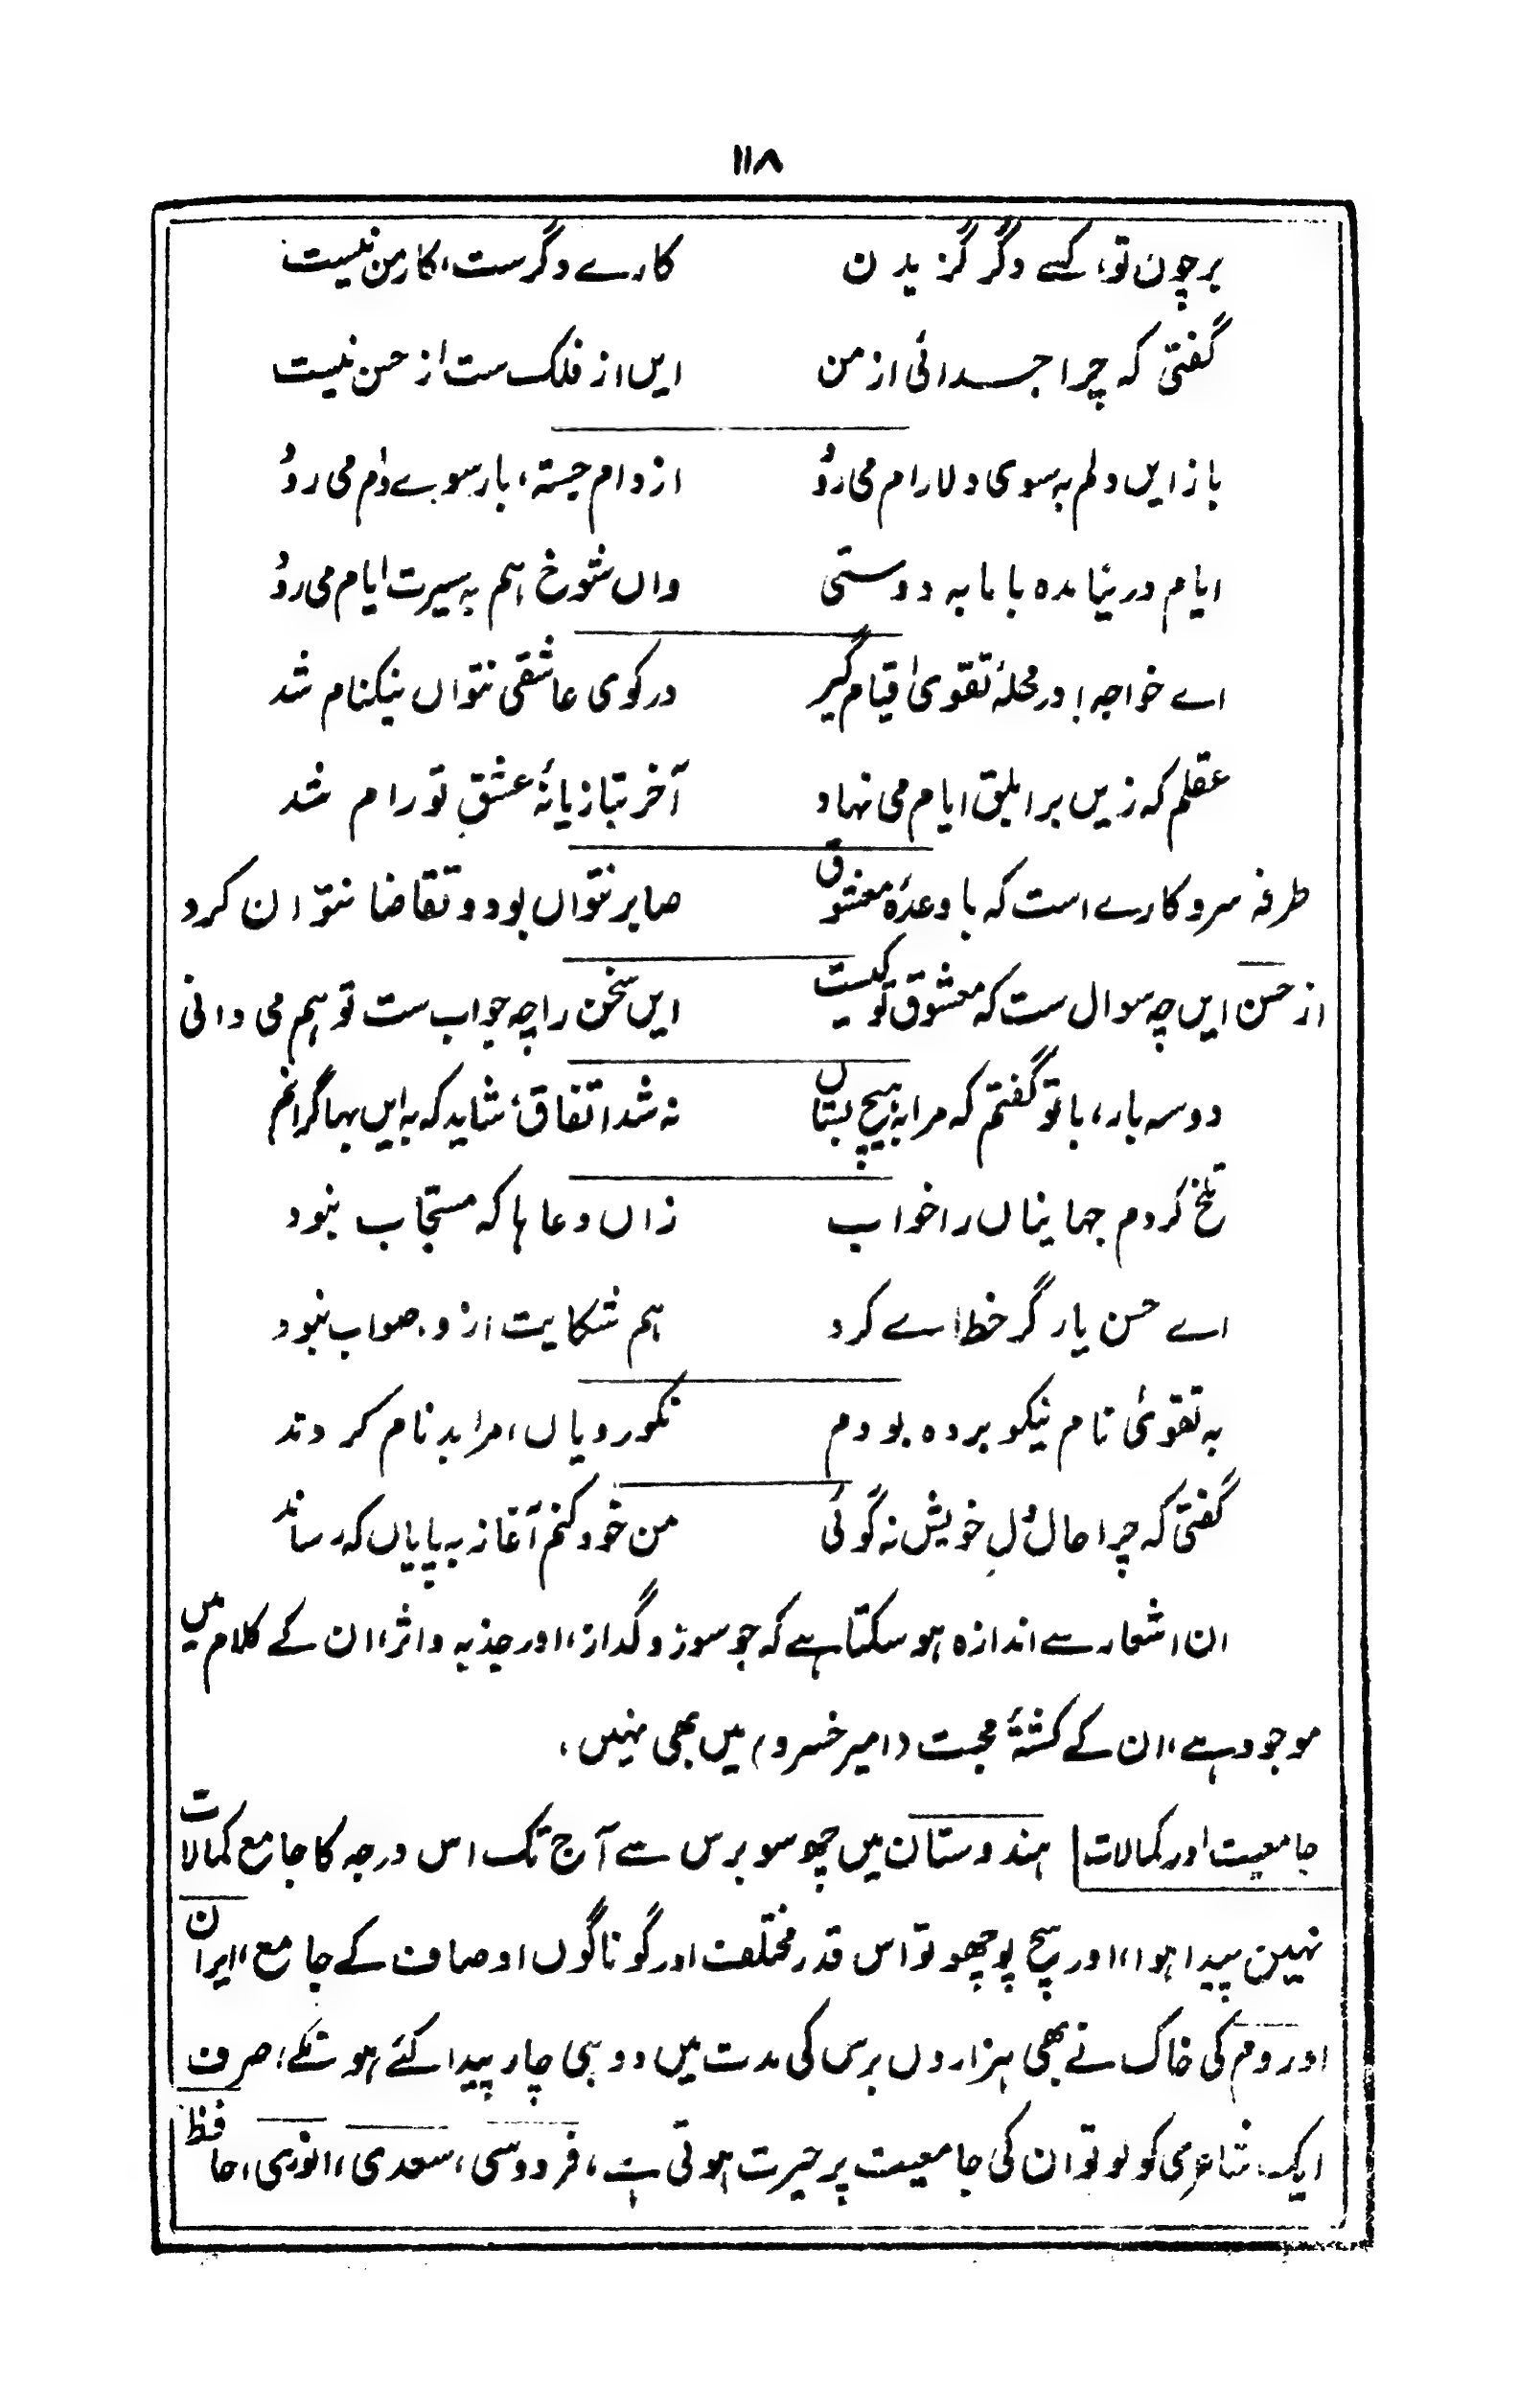 ۱۱۸
بر چون تو، کسے دگر گزیدن کارے دگرست، کارمن نیست
گفتی کہ چرا جدائی از من ایں از فلک ست از حسن نیست
باز ایں دلم بہ سوی دلارام می رود از دام جستہ، باز سوے دام می رود
ایام در نیامدہ با ما بہ دوستی واں شوخ ہم بہ سیرت ایام می رود
اے خواجہ! در محلۂ تقویٰ قیام گیر در کوی عاشقی نتواں نیکنام شد
عقلم کہ زیں بر ابلق ایام می نہاد آخر بتازیانۂ عشقِ تو رام شد
طرفہ سروکارے است کہ با وعدۂ معشوق صابر نتواں بود و تقاضا نتوان کرد
از حسن ایں چہ سوال ست کہ معشوق تو کیست ایں سخن را چہ جواب ست تو ہم می دانی
دو سہ بار، با تو گفتم کہ مرا بہ ہیچ بستاں نہ شد اتفاق، شاید کہ بہ ایں بہا گرانم
تلخ کردم جہانیاں را خواب زاں دعا ہا کہ مستجاب نبود
اے حسن یار گر خطا اے کرد ہم شکایت از و صواب نبود
بہ تقویٰ نام نیکو بردہ بودم نکورویاں، مرا بدنام کردند
گفتی کہ چرا حال دلِ خویش نہ گوئی من خود کنم آغاز بہ پایاں کہ رساند
ان اشعار سے اندازہ ہو سکتا ہے کہ جو سوز و گداز، اور جذبہ و اثر، ان کے کلام میں
موجود ہے، ان کے کشتۂ محبت (امیر خسرو) میں بھی نہیں،
جامعیت اور کمالات ہندوستان میں چھ سو برس سے آج تک اس درجہ کا جامع کمالات
نہین پیدا ہوا، اور سچ پوچھو تو اس قدر مختلف اور گوناگوں اوصاف کے جامع، ایران
اور روم کی خاک نے بھی ہزاروں برس کی مدت میں دو ہی چار پیدا کئے ہونگے، صرف
ایک شاعری کو لو تو ان کی جامعیت پر حیرت ہوتی ہے، فردوسی، سعدی، انوری، حافظ